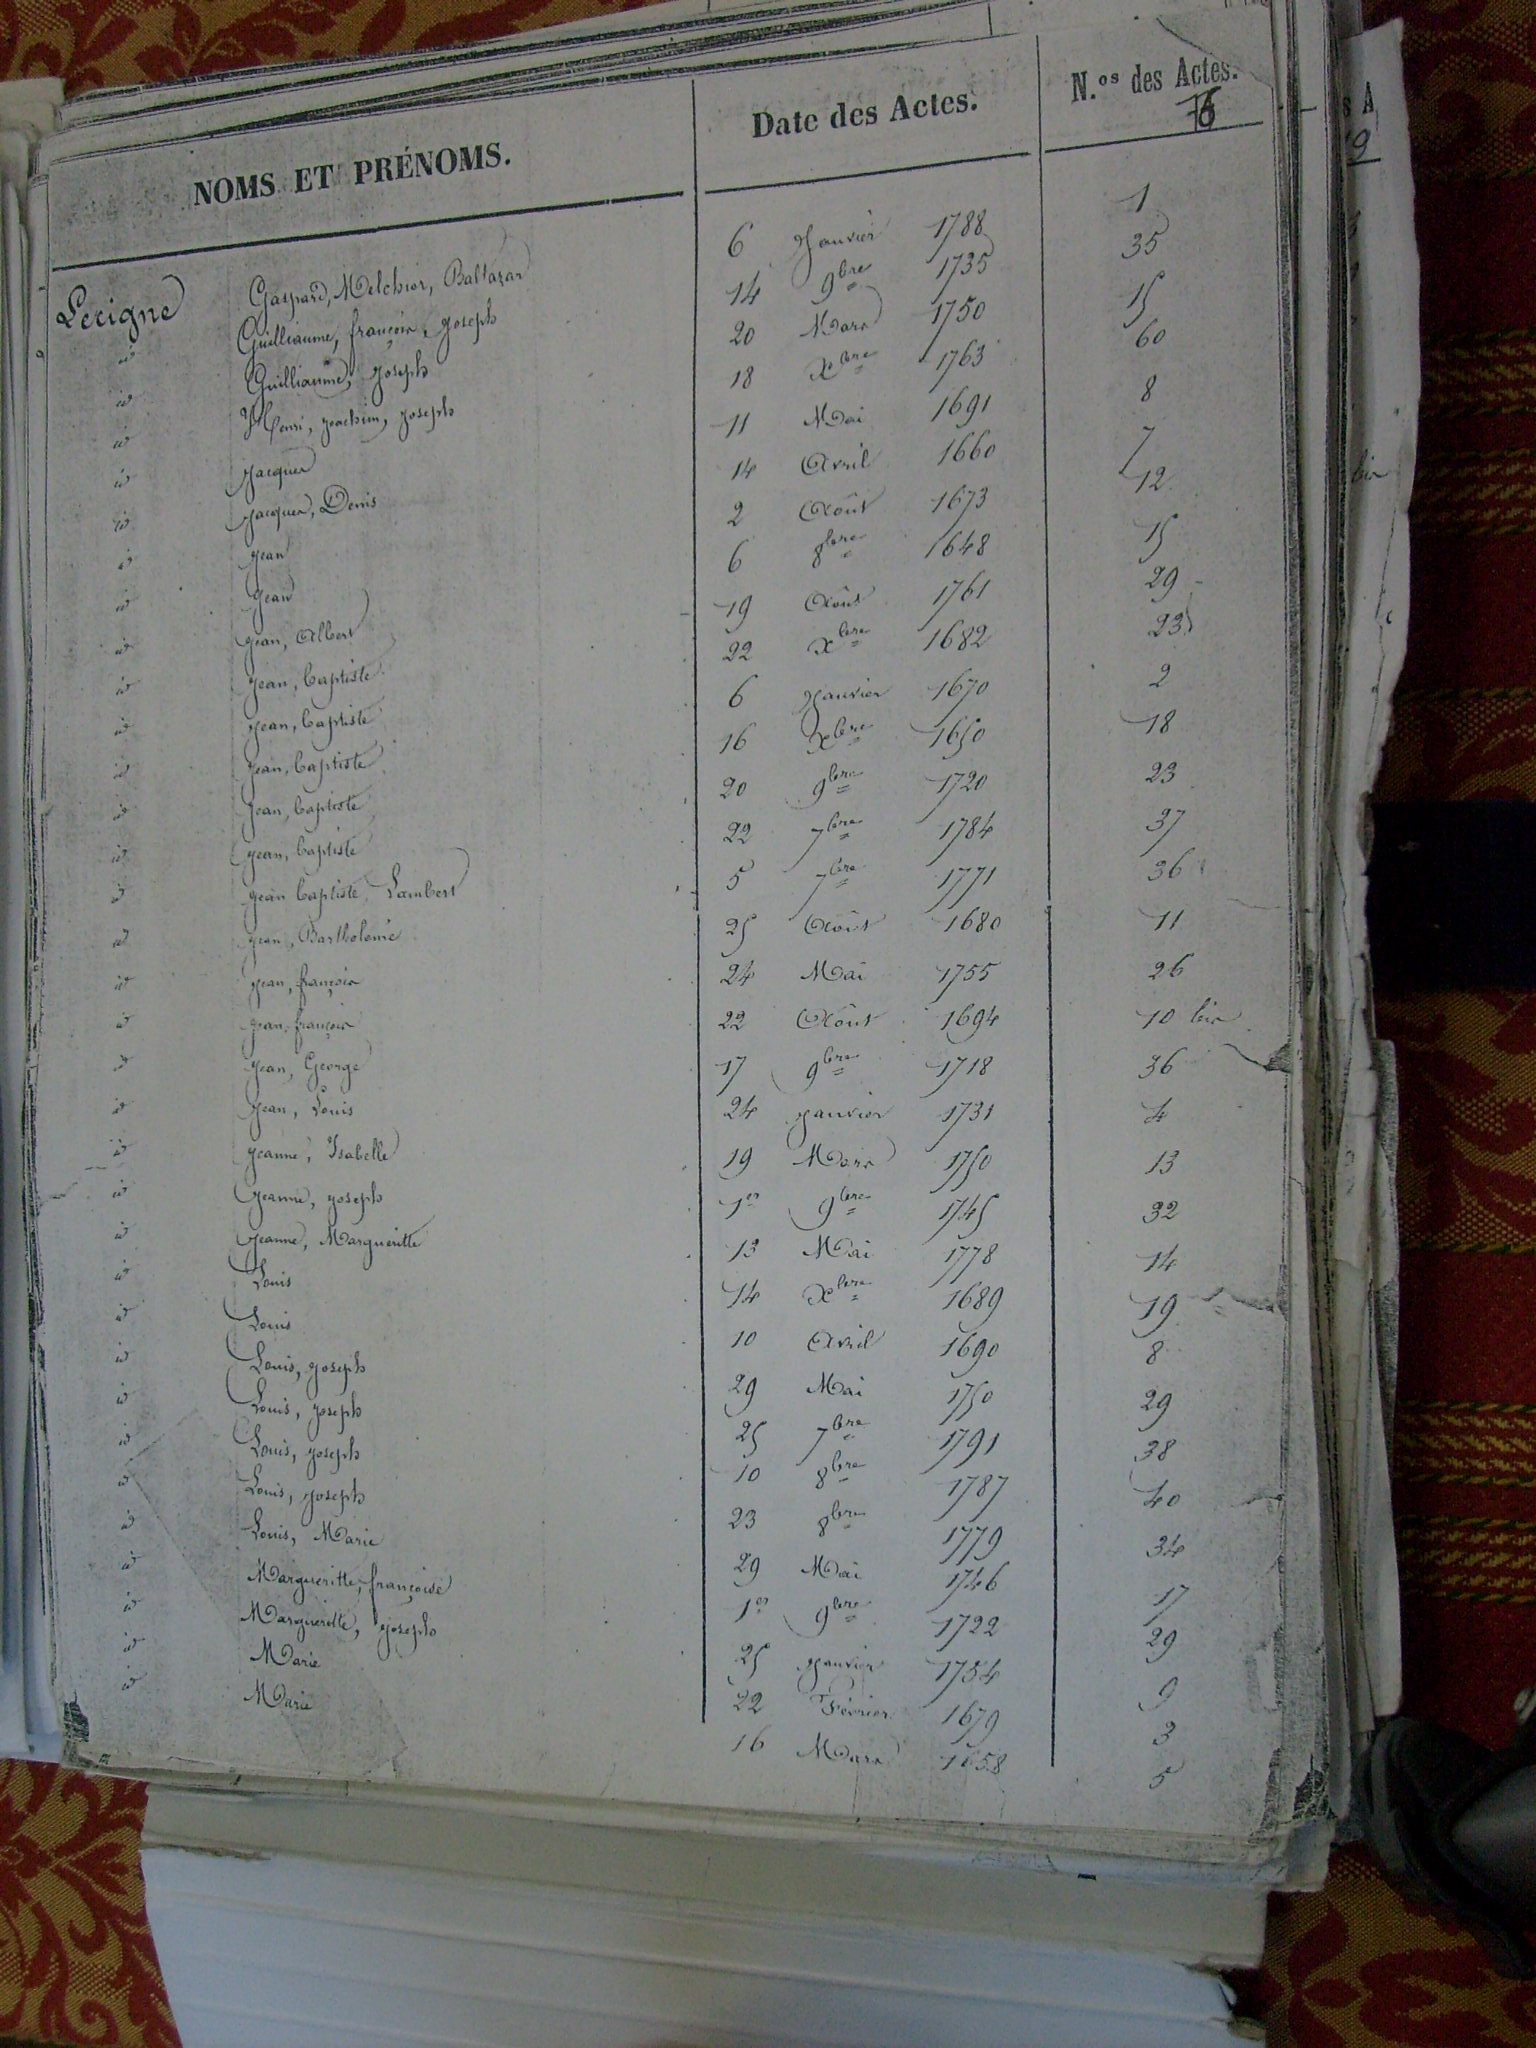 NOMS ET PRÉNOMS. Date des Actes. N.os des Actes.
Lecigne Gaspard, Melchior, Baltazar 6 Janvier 1788 1
id Guilliaume, françois, joseph 14 9bre 1735 35
id Guilliaume, joseph 20 Mars 1750 15
id Henri, joachim, joseph 18 Xbre 1763 60
id jacques 11 Mai 1691 8
id jacques, Denis 14 Avril 1660 7
id jean 2 Août 1673 12
id jean 6 8bre 1648 15
id jean, Albert 19 Août 1761 29
id jean, baptiste 22 Xbre 1682 23
id jean, baptiste 6 Janvier 1670 2
id jean, baptiste 16 Xbre 1650 18
id jean, baptiste 20 9bre 1720 23
id jean, baptiste 22 7bre 1784 37
id jean baptiste Lambert 5 7bre 1771 36
id jean, Bartholomé 25 Août 1680 11
id jean, françois 24 Mai 1755 26
id jean, françois 22 Août 1694 10 bis
id jean, George 17 9bre 1718 36
id jean, Louis 24 janvier 1731 4
id jeanne, Isabelle 19 Mars 1750 13
id jeanne, joseph 1er 9bre 1745 32
id jeanne, Margueritte 13 Mai 1778 14
id Louis 14 Xbre 1689 19
id Louis 10 Avril 1690 8
id Louis, joseph 29 Mai 1750 29
id Louis, joseph 25 7bre 1791 38
id Louis, joseph 10 8bre 1787 40
id Louis, joseph 23 8bre 1779 34
id Louis, Marie 29 Mai 1746 17
id Margueritte, françoise 1er 9bre 1722 29
id Margueritte, joseph 25 Janvier 1754 9
id Marie 22 Février 1679 3
id Marie 16 Mars 1658 5